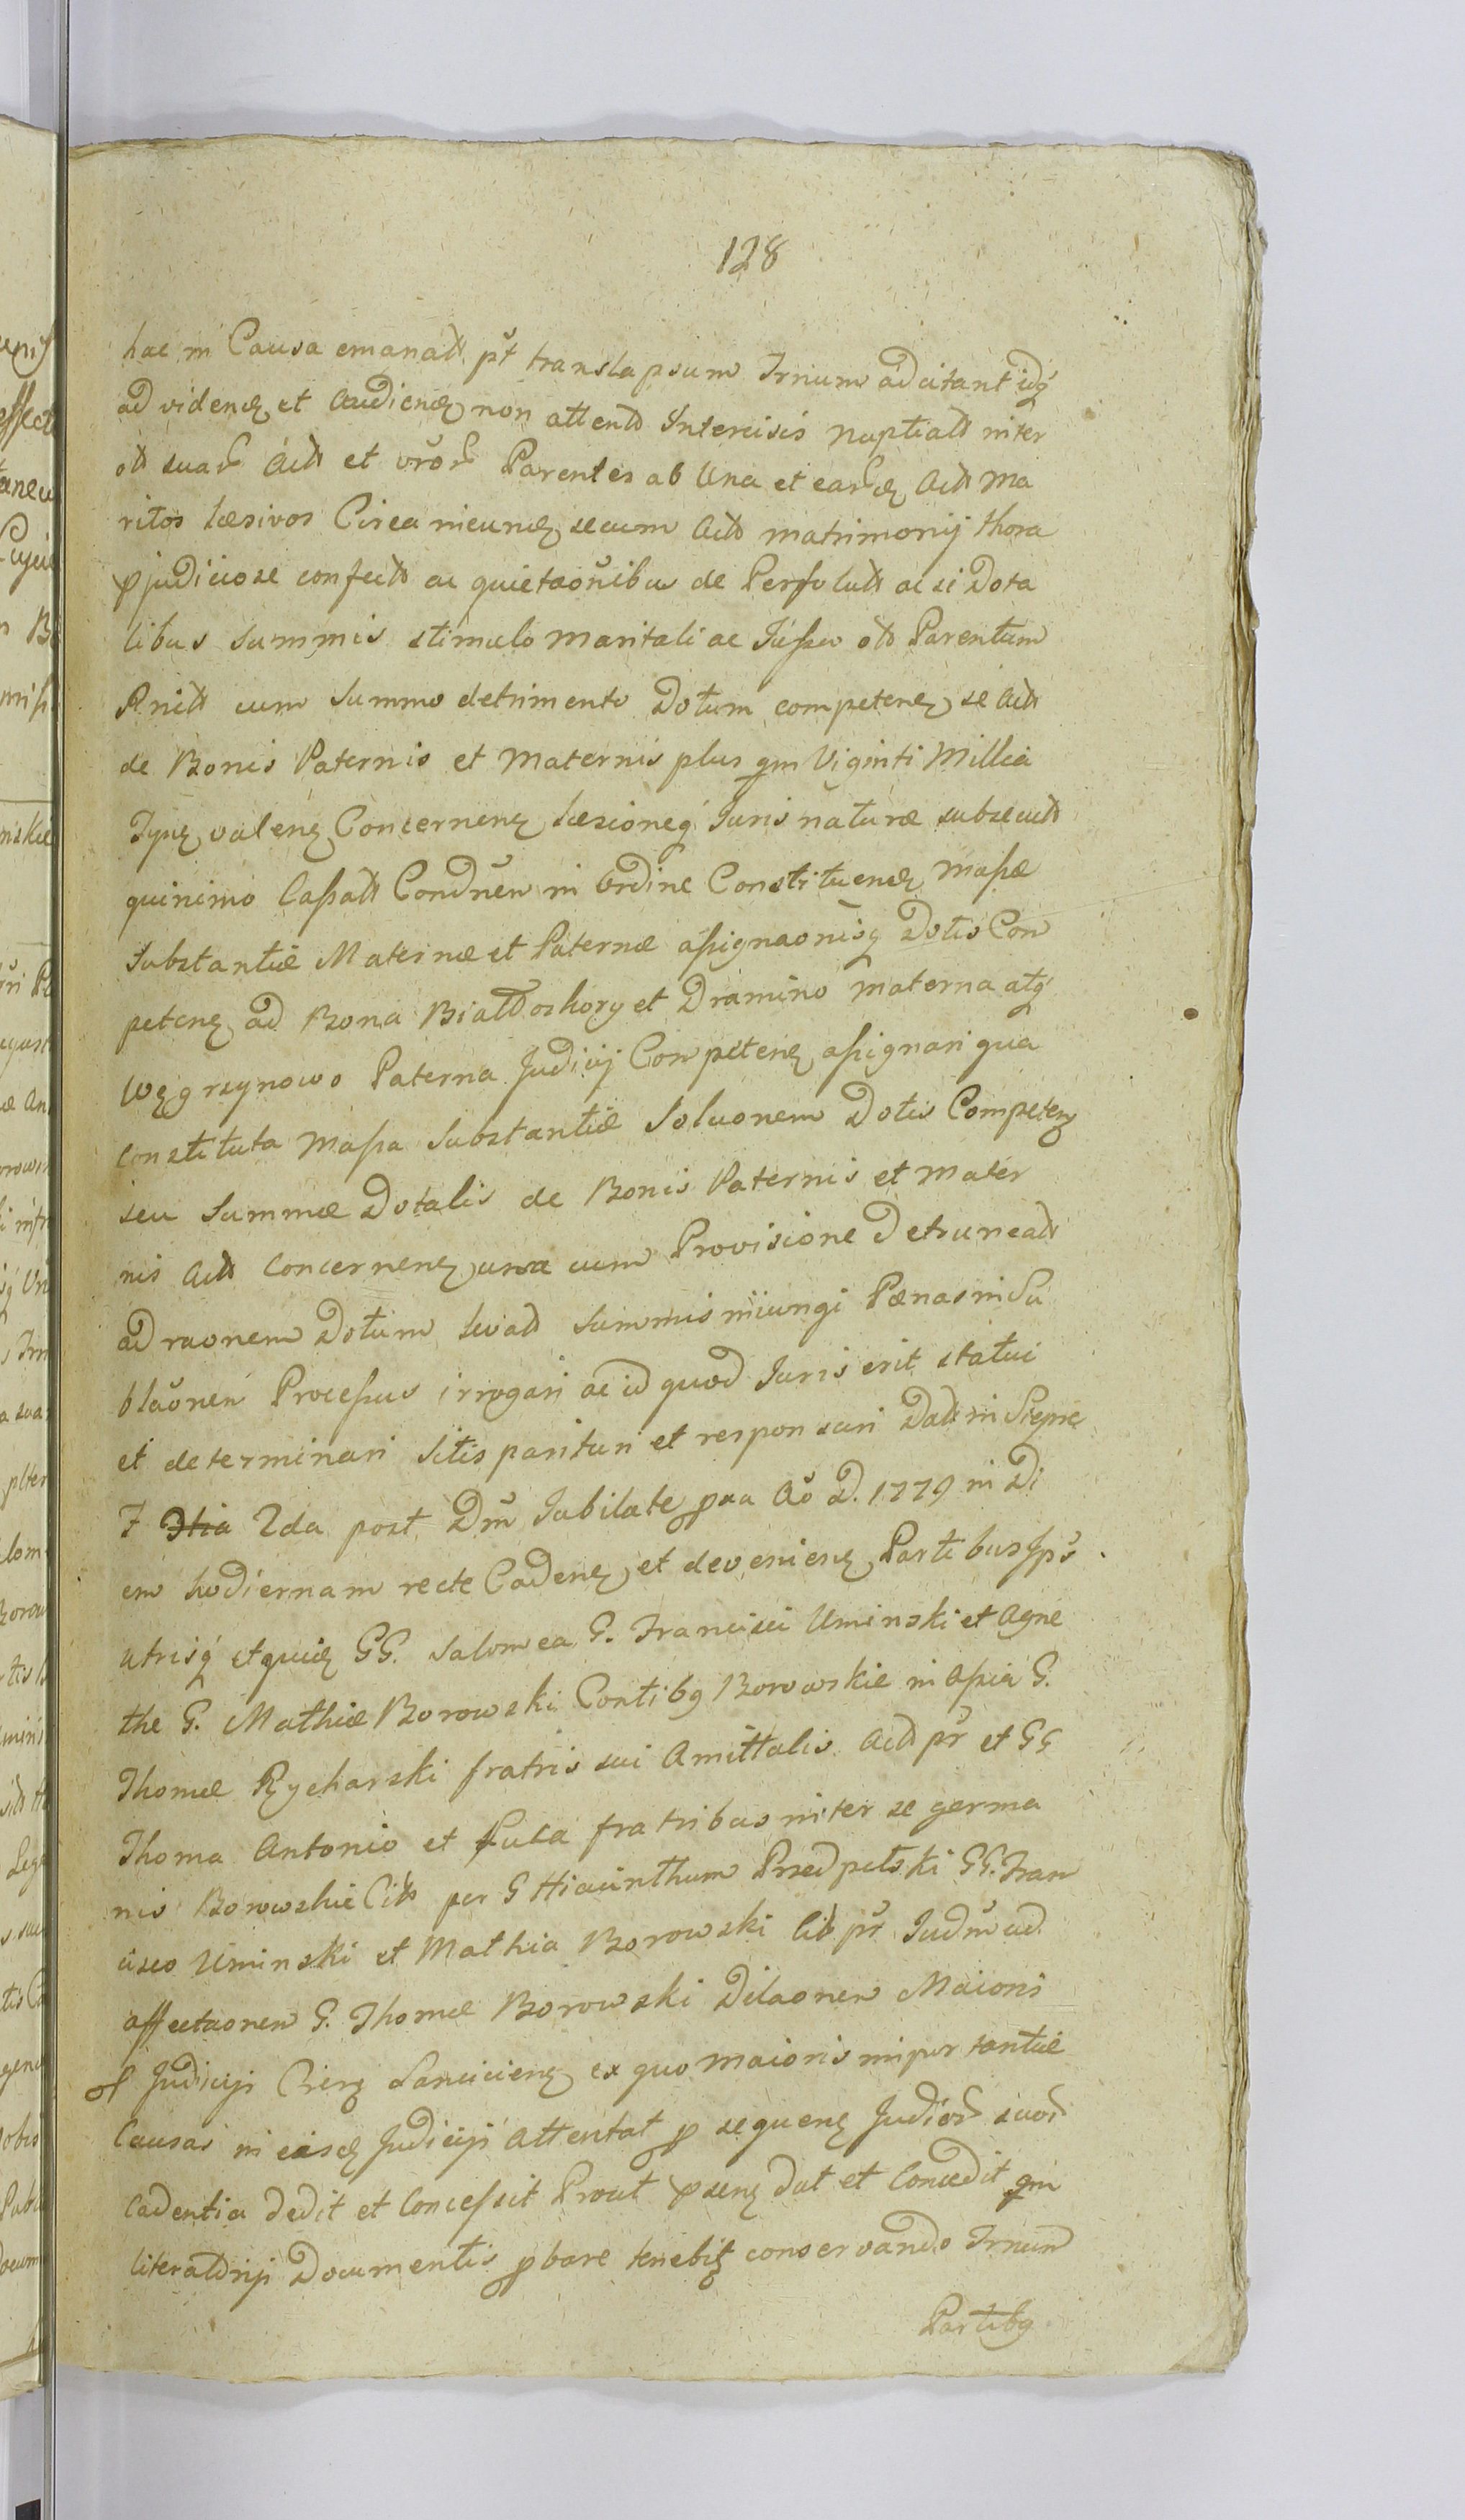 128
hac in Causa emanatt pt translapsum Trnum adcitant idq
ad videnđ et audienđ non attentt Intercisis nuptiatt inter
ott suar Actt et vror Parentes ab Una et earđ Actt Ma
ritos læsivos Circa ineunđ secum Actt matrimonij thora
pjudiciose confectt ac quietaonibus de Persolutt ac si Dota
libus Summis stimulo Maritali ac Jussu ott Parentum
cum Summo detrimento Dotum competenę se Actt
de Bonis Paternis et Maternis plus qm Viginti Millia
valenę Concernenę læsioneq Juris naturæ subsecutt
quinimo Cassatt Condnem in Ordine Constituenđ Massæ
Substantiæ Maternæ et Paternæ assignaonisq Dotis Com
petenę ad Bona Białdoskory et Dramino Materna atq
Węgrzynowo Paterna Judicij Competenę assignari qua
constituta Massa Substantiæ Soluonem Dotis Competenę
seu Summæ Dotalis de Bonis Paternis et Mater
nis Actt concernenę una cum Provisione Detruncatt
ad raonem Dotum levatt Summis iniungi Pænas in Su
blaonem Processus irrogari ac id quod Juris erit statui
et determinari Sitis parituri et responsuri Datt in Sierpc
F Htia 2da post Dm Jubilate pxa Ao D. 1779 in Di
em hodiernam recte Cadenę et devenienę Partibus Ips
utrisq et quiđ GG. Salomea G. Francisci Uminski et Agne
the G. Mathiæ Borowski Contibg Borowskie in Assia G.
Thomæ Rycharski fratris sui Amittalis Actt pr et GG
Thoma Antonio et Luca fratribus inter se germa
nis Borowskie Citt per G Hiacinthum Przedpełski GG. Fran
cisco Uminski et Mathia Borowski lib pr Judm ad
affectaonem G. Thomæ Borowski Dilaonem Maioris
of Judicij Lanciciens ex quo maioris importantiæ
Causas in eisđ Judicijs attentat p sequenę Judior suor
Cadentia dedit et Concessit Prout psenę dat et Concedit qm
literatorijs Documentis pbare tenebit conservando Trnum
Partibg